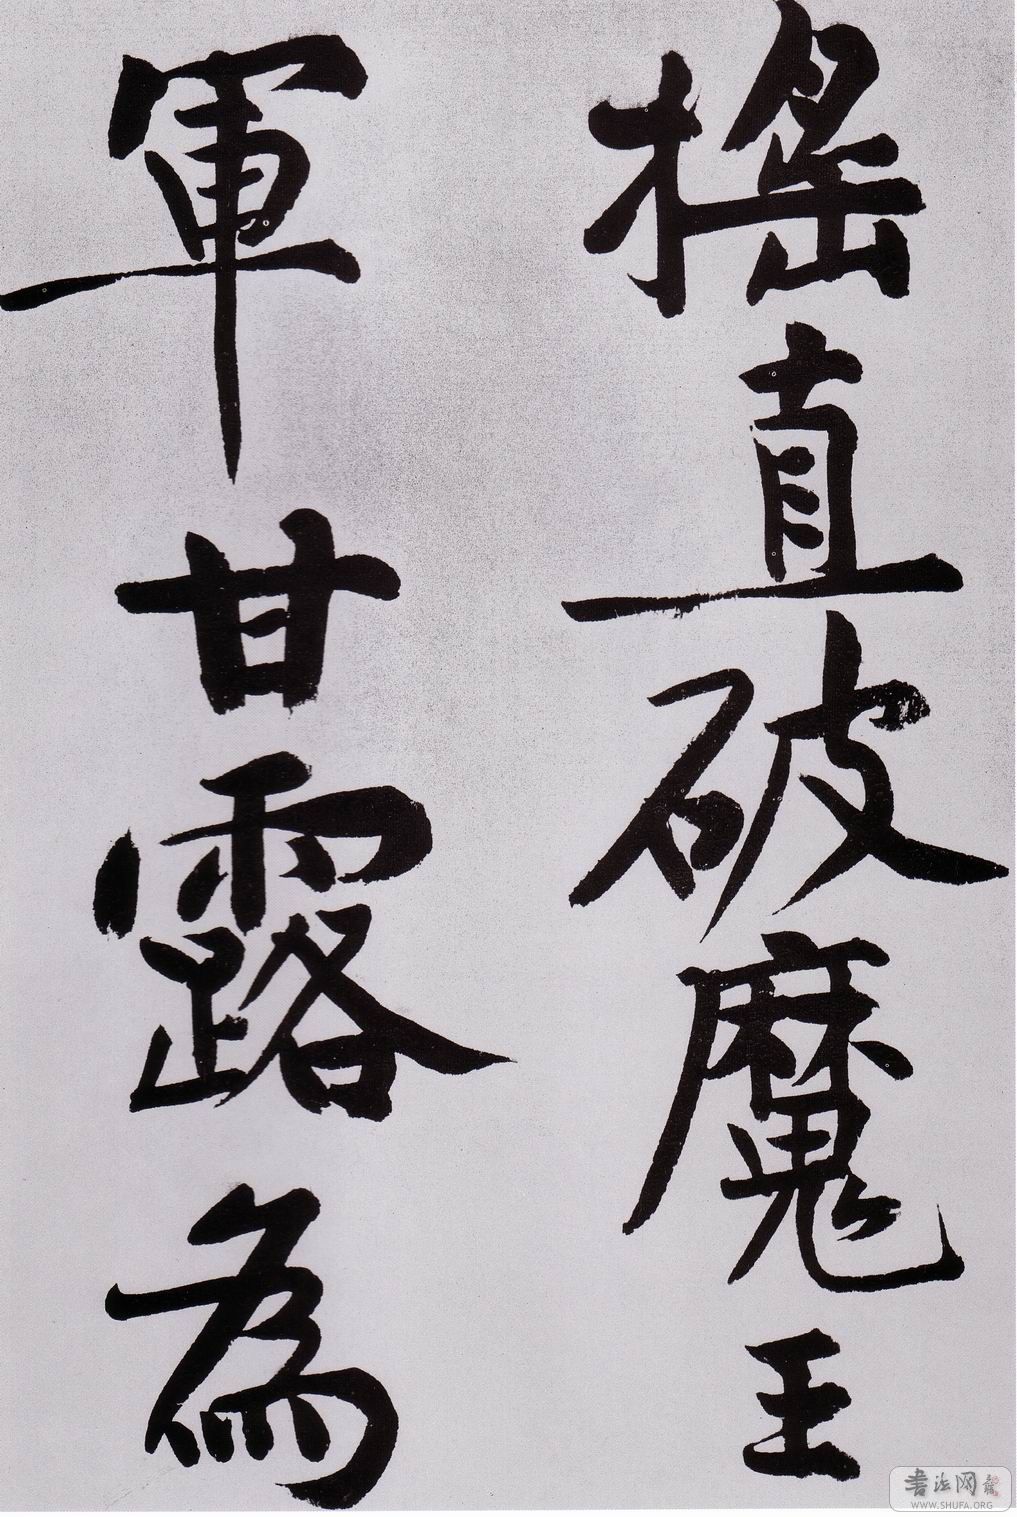 搖直破魔王
軍甘露為
书法网
WWW.SHUFA.ORG